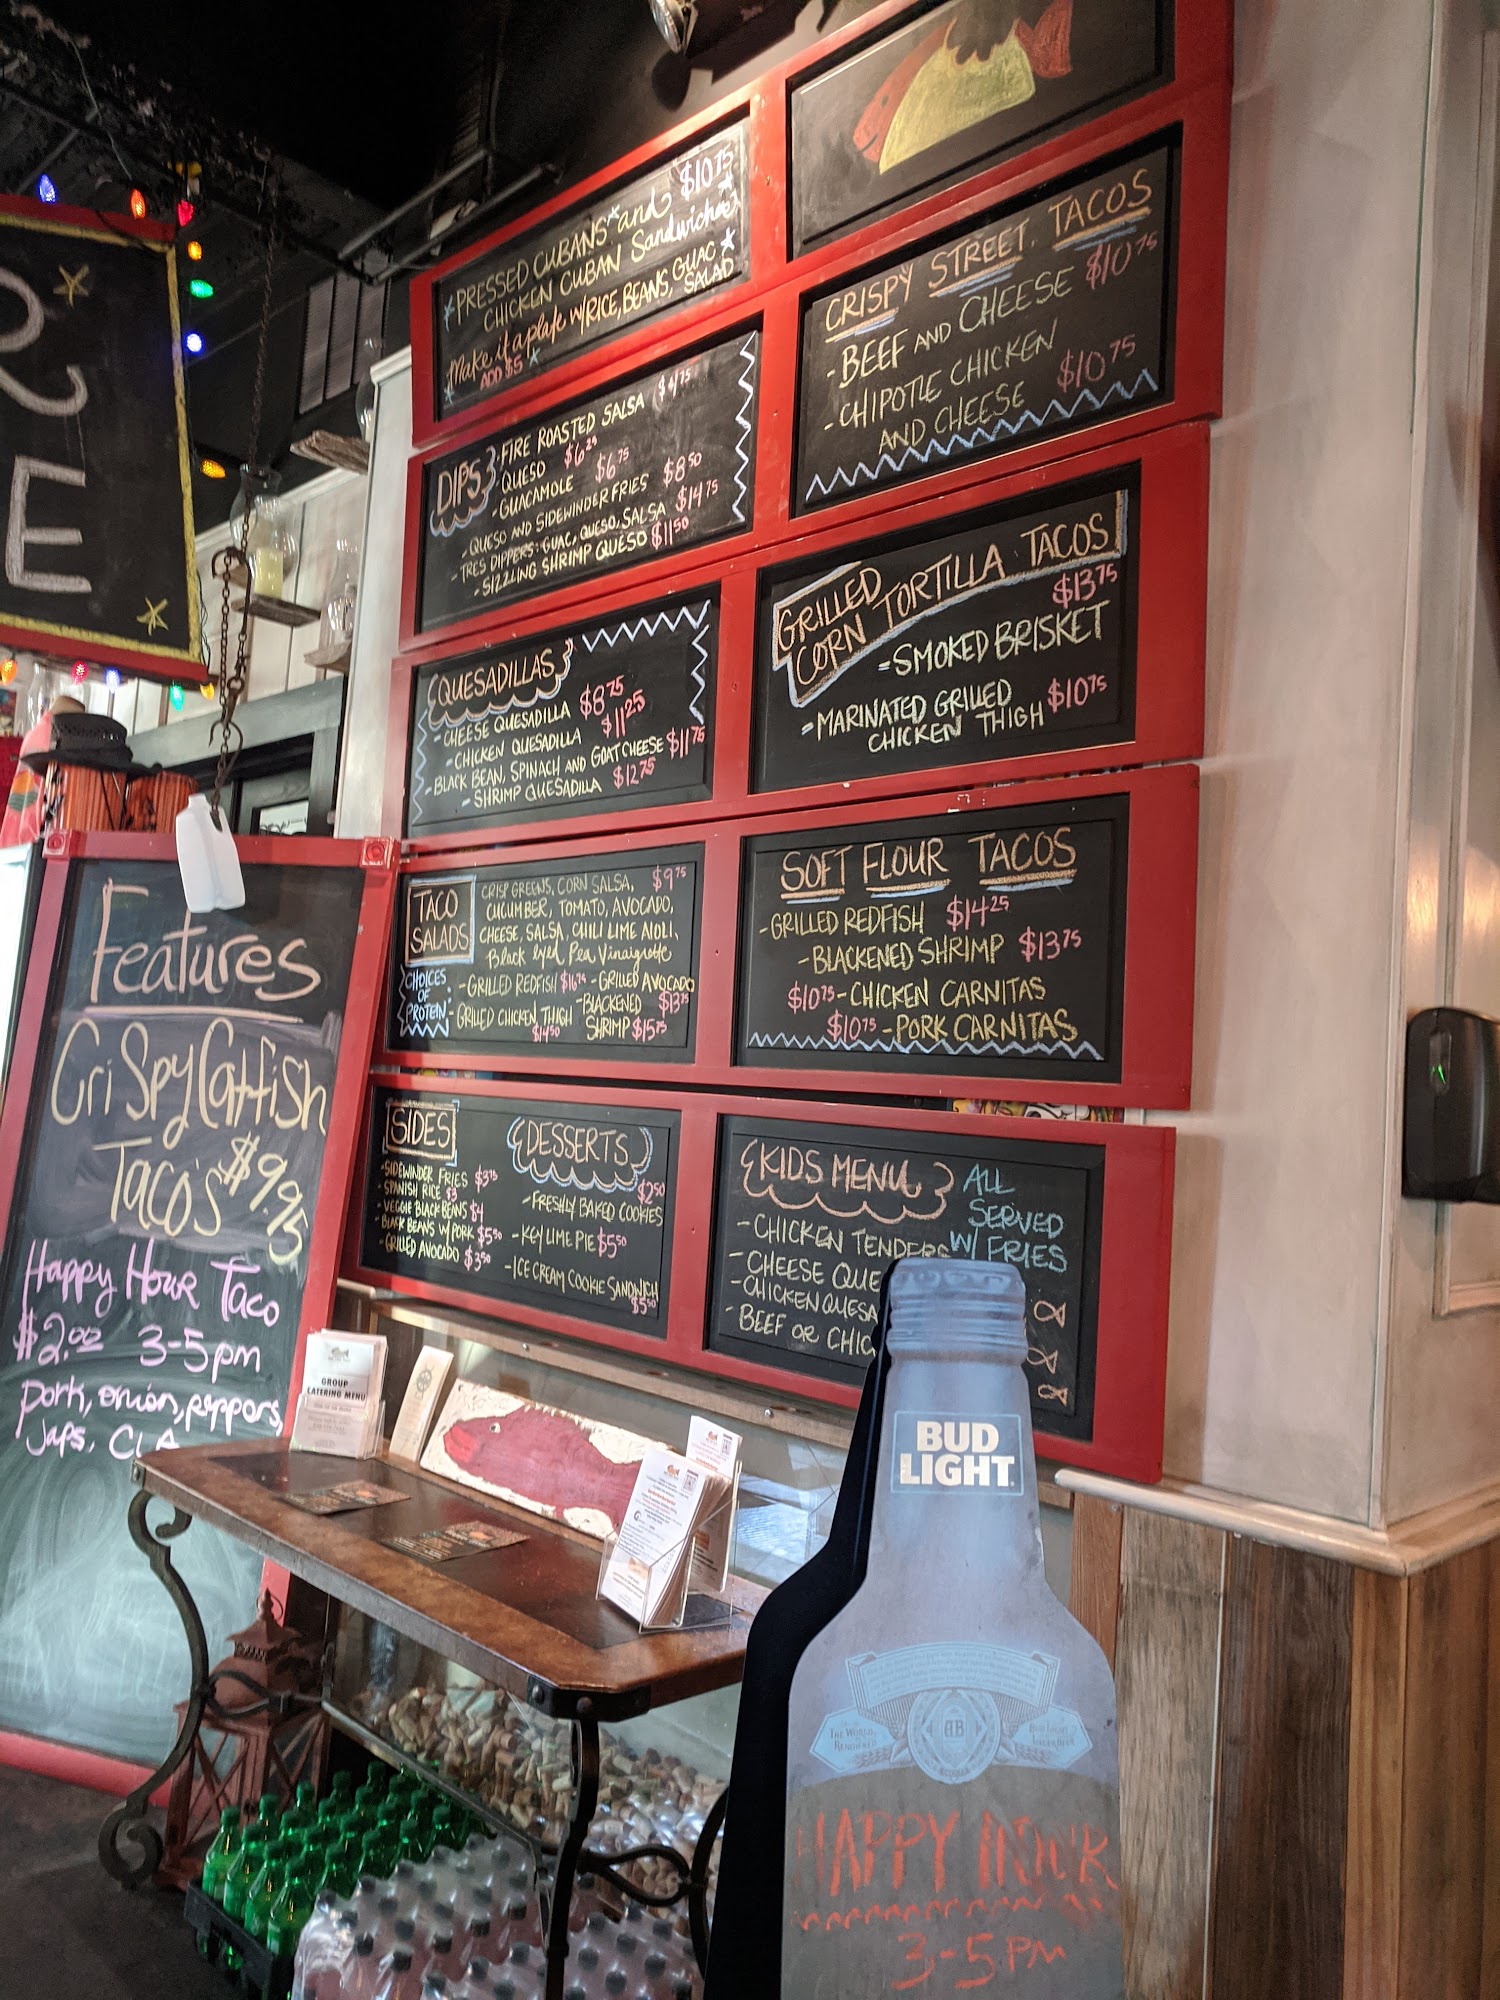 PRESSED CUBANS and $10.75
CHICKEN CUBAN Sandwiches
Make it a plate w/RICE, BEANS, GUAC,
SALAD
ADD $5
DIPS
- FIRE ROASTED SALSA $4.75
- QUESO $6.25
- GUACAMOLE $6.75
- QUESO AND SIDEWINDER FRIES $8.50
- TRES DIPPERS: GUAC, QUESO, SALSA $14.75
- SIZZLING SHRIMP QUESO $11.50
QUESADILLAS
- CHEESE QUESADILLA $8.75
- CHICKEN QUESADILLA $11.25
- BLACK BEAN, SPINACH AND GOAT CHEESE $11.75
- SHRIMP QUESADILLA $12.75
TACO
SALADS
CRISP GREENS, CORN SALSA, $9.75
CUCUMBER, TOMATO, AVOCADO,
CHEESE, SALSA, CHILI LIME AIOLI,
Black eyed Pea Vinaigrette
CHOICES
OF
PROTEIN:
- GRILLED REDFISH $16.75 - GRILLED AVOCADO
$13.75
- GRILLED CHICKEN THIGH
$14.50
- BLACKENED
SHRIMP $15.75
SIDES
- SIDEWINDER FRIES $3.75
- SPANISH RICE $3
- VEGGIE BLACK BEANS $4
- BLACK BEANS W/ PORK $5.50
- GRILLED AVOCADO $3.50
DESSERTS
$2.50
- FRESHLY BAKED COOKIES
- KEY LIME PIE $5.50
- ICE CREAM COOKIE SANDWICH
$5.50
CRISPY STREET TACOS
- BEEF AND CHEESE $10.75
- CHIPOTLE CHICKEN
AND CHEESE $10.75
GRILLED
CORN TORTILLA TACOS
$13.75
- SMOKED BRISKET
- MARINATED GRILLED
CHICKEN THIGH $10.75
SOFT FLOUR TACOS
- GRILLED REDFISH $14.25
- BLACKENED SHRIMP $13.75
$10.75 - CHICKEN CARNITAS
$10.75 - PORK CARNITAS
KIDS MENU
ALL
SERVED
W/ FRIES
- CHICKEN TENDERS
- CHEESE QUE
- CHICKEN QUESA
- BEEF OR CHIC
Features
Crispy Catfish
Taco's $9.95
Happy Hour Taco
$2.00 3-5pm
pork, onion, peppors,
Japs,
GROUP
CATERING MENU
BUD
LIGHT
AB
HAPPY HOUR
3-5PM